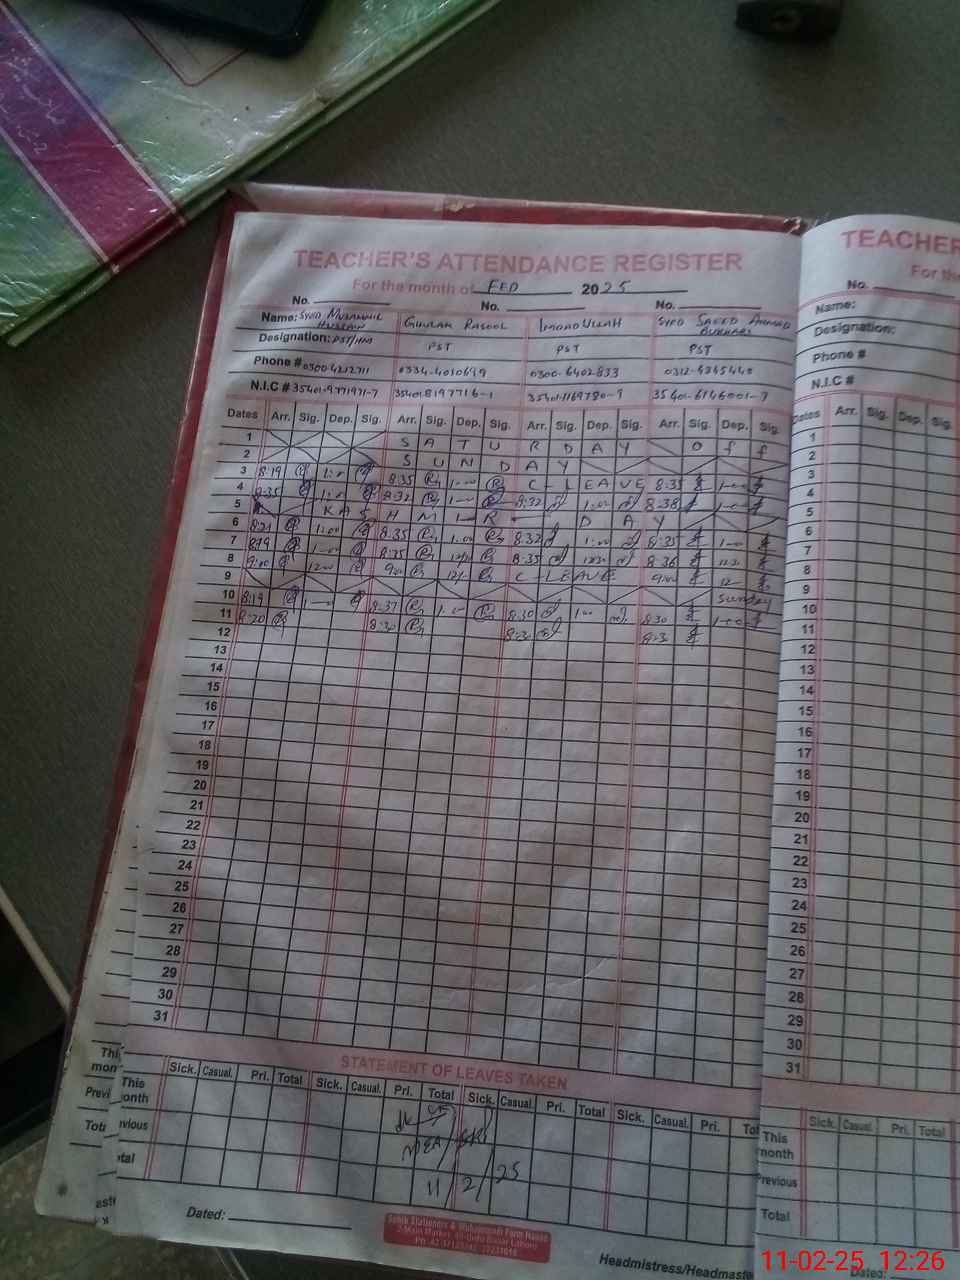 TEACHER'S ATTENDANCE REGISTER
For the month of FEB 2025
No. No. No.
Name: Syed Muzammil Hussain Ghulam Rasool Imdad Ullah Syed Saeed Ahmad Bukhari
Designation: PST/HM PST PST PST
Phone # 0300-4212711 0334-4010699 0300-6402833 0312-4345440
N.I.C # 35401-9771971-7 35401-8197716-1 35401-1169780-9 35401-6146001-7
Dates Arr. Sig. Dep. Sig. Arr. Sig. Dep. Sig. Arr. Sig. Dep. Sig. Arr. Sig. Dep. Sig.
1 S A T U R D A Y O f f
2 S U N D A Y
3 8:19 1:00 8:35 1-00 C-LEAVE 8:35 1-00
4 8:35 1:00 8:32 1-00 8:32 1.00 8:38 1-00
5 K A S H M I R D A Y
6 8:21 1:00 8:35 1.00 8:32 1:00 8:35 1-00
7 8:19 1-00 8:35 8:35 8:36
8 9:00 12:00 9:00 12 C-LEAVE 9:00 12
9 Sunday
10 8:19 1-00 8:37 1:00 8:30 1:00 8:30 1-00
11 8:20 8:30 8:30 8:30
12
13
14
15
16
17
18
19
20
21
22
23
24
25
26
27
28
29
30
31
STATEMENT OF LEAVES TAKEN
Sick. Casual. Pri. Total Sick. Casual. Pri. Total Sick. Casual. Pri. Total Sick. Casual. Pri. Tot
This month
Previous
Total
MEA
11/2/25
Dated:
Main Market, 40-Urdu Bazar Lahore
Headmistress/Headmaste
TEACHER
For th
No.
Name:
Designation:
Phone #
N.I.C #
Dates Arr. Sig. Dep. Sig.
1
2
3
4
5
6
7
8
9
10
11
12
13
14
15
16
17
18
19
20
21
22
23
24
25
26
27
28
29
30
31
Sick. Casual. Pri. Total
This month
Previous
Total
Dated:
11-02-25 12:26